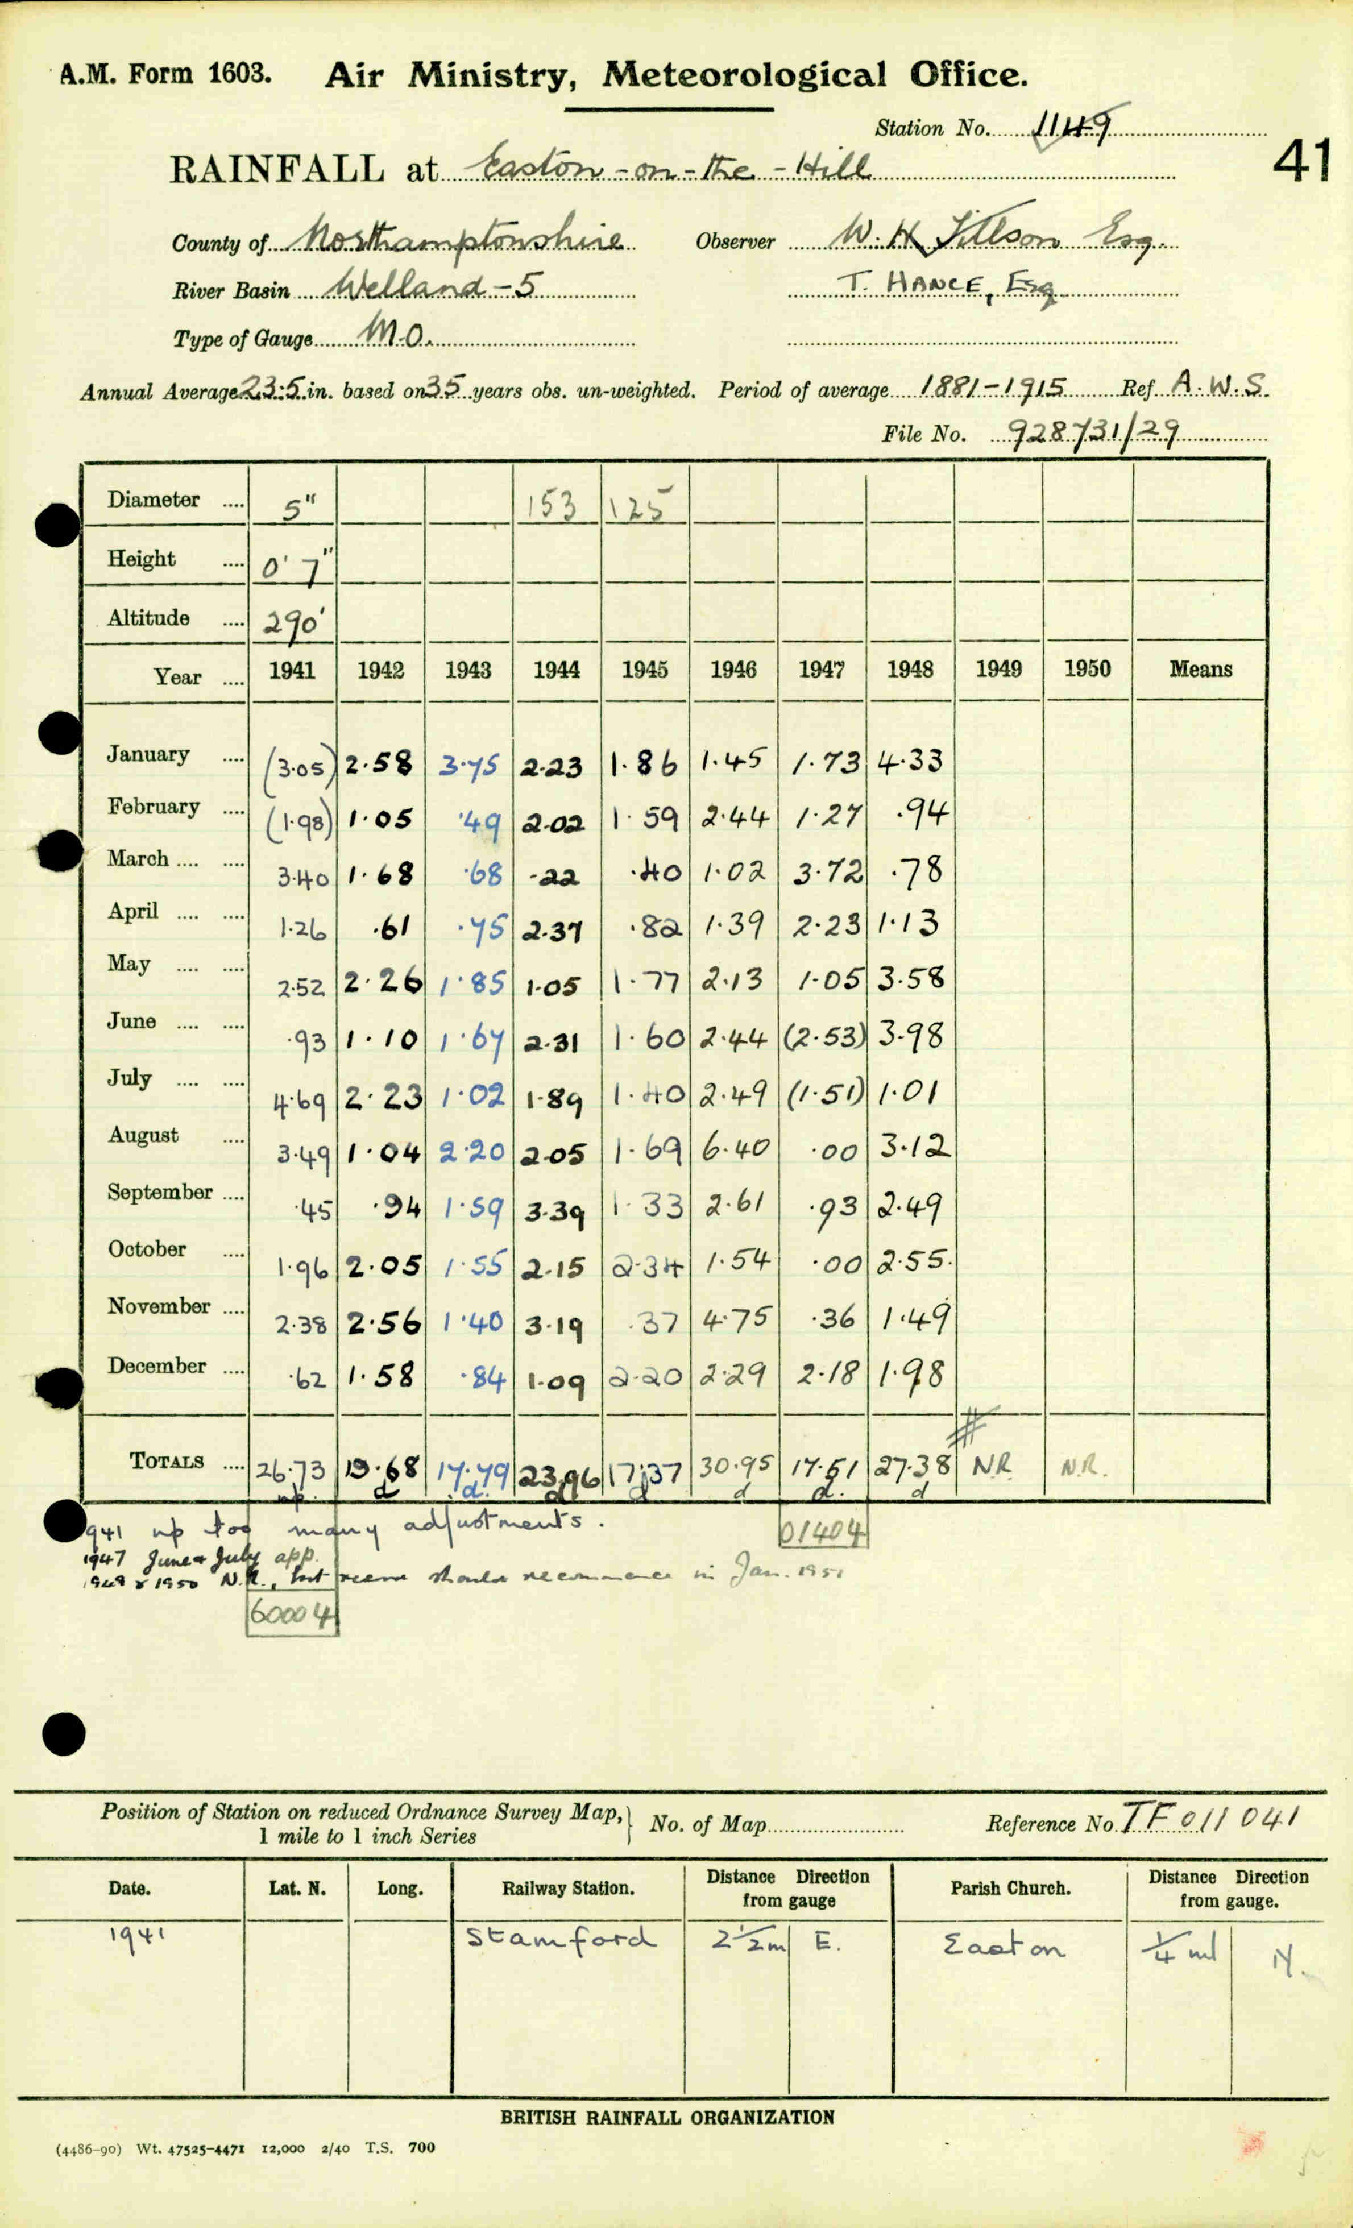 A.M. Form 1603. Air Ministry, Meteorological Office.
Station No. 1149
41
RAINFALL at Easton-on-the-Hill
County of Northamptonshire Observer W. H. Tillson Esq.
River Basin Welland-5 T. HANCE, Esq
Type of Gauge M.O.
Annual Average 23.5 in. based on 35 years obs. un-weighted. Period of average 1881-1915 Ref. A.W.S.
File No. 928731/29
Diameter .... 5" 153 125
Height .... 0' 7"
Altitude .... 290'
Year .... 1941 1942 1943 1944 1945 1946 1947 1948 1949 1950 Means
January .... (3.05) 2.58 3.75 2.23 1.86 1.45 1.73 4.33
February .... (1.98) 1.05 .49 2.02 1.59 2.44 1.27 .94
March .... .... 3.40 1.68 .68 .22 .40 1.02 3.72 .78
April .... .... 1.26 .61 .75 2.37 .82 1.39 2.23 1.13
May .... .... 2.52 2.26 1.85 1.05 1.77 2.13 1.05 3.58
June .... .... .93 1.10 1.67 2.31 1.60 2.44 (2.53) 3.98
July .... .... 4.69 2.23 1.02 1.89 1.40 2.49 (1.51) 1.01
August .... 3.49 1.04 2.20 2.05 1.69 6.40 .00 3.12
September .... .45 .94 1.59 3.39 1.33 2.61 .93 2.49
October .... 1.96 2.05 1.55 2.15 2.34 1.54 .00 2.55.
November .... 2.38 2.56 1.40 3.19 .37 4.75 .36 1.49
December .... .62 1.58 .84 1.09 2.20 2.29 2.18 1.98
TOTALS .... 26.73 19.68 17.79 23.96 17.37 30.95 17.51 27.38 N.R. N.R.
np. d d. d d d d. d
1941 np too many adjustments. 01404
1947 June & July app.
1949 & 1950 N.R., but record should recommence in Jan. 1951
60004
Position of Station on reduced Ordnance Survey Map, 1 mile to 1 inch Series } No. of Map Reference No. TF 011 041
Date. Lat. N. Long. Railway Station. Distance Direction from gauge Parish Church. Distance Direction from gauge.
1941 Stamford 2½m E. Easton ¼ ml N.
BRITISH RAINFALL ORGANIZATION
(4486-90) Wt. 47525-4471 12,000 2/40 T.S. 700